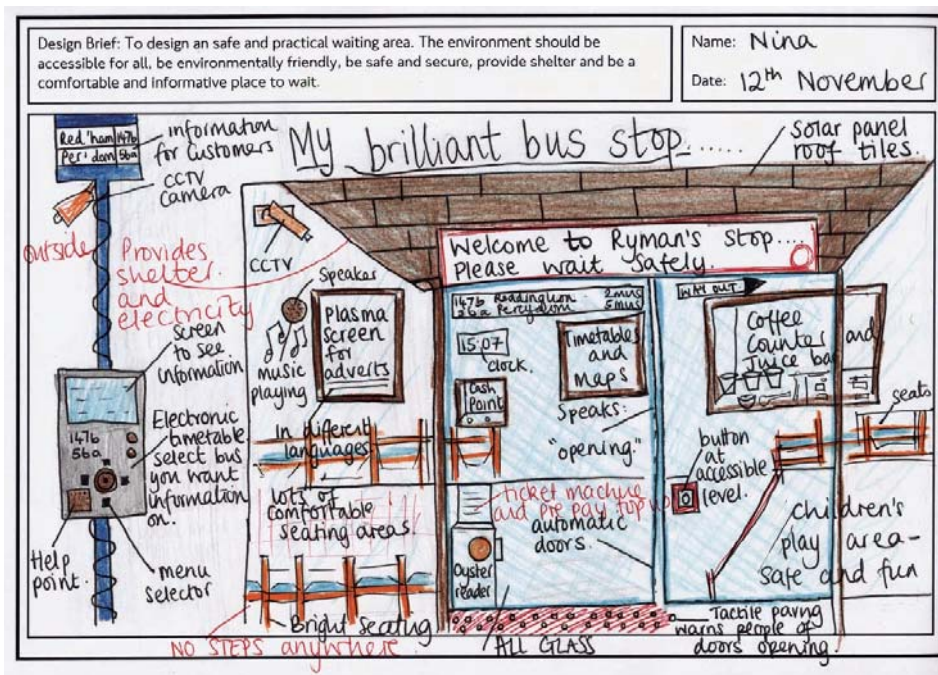 Design Brief: To design an safe and practical waiting area. The environment should be
accessible for all, be environmentally friendly, be safe and secure, provide shelter and be a
comfortable and informative place to wait.
Name: Nina
Date: 12th November
My brilliant bus stop......
Red'ham 147b
Per'dom 56a
information
for customers
CCTV
camera
outside
Provides
shelter
and
electricity
Screen
to see
information
147b
56a
Electronic
timetable
select bus
you want
information
on.
Help
point.
menu
selector
Solar panel
roof tiles.
CCTV
Speaker
music
playing
Plasma
screen
for
adverts
In different
languages
lots of
comfortable
seating areas
Bright seating
NO STEPS anywhere
Welcome to Ryman's Stop....
Please wait Safely.
147b Readinglion 2mins
26a Percydom 5mins
15:07
clock.
Cash
Point
Timetables
and
maps
Speaks:
"opening."
ticket machine
and pre pay top up
automatic
doors.
Oyster
reader
ALL GLASS
WAY OUT
Coffee
Counter and
Juice bar
seats
button
at
accessible
level.
children's
play area-
safe and fun
Tactile paving
warns people of
doors opening.